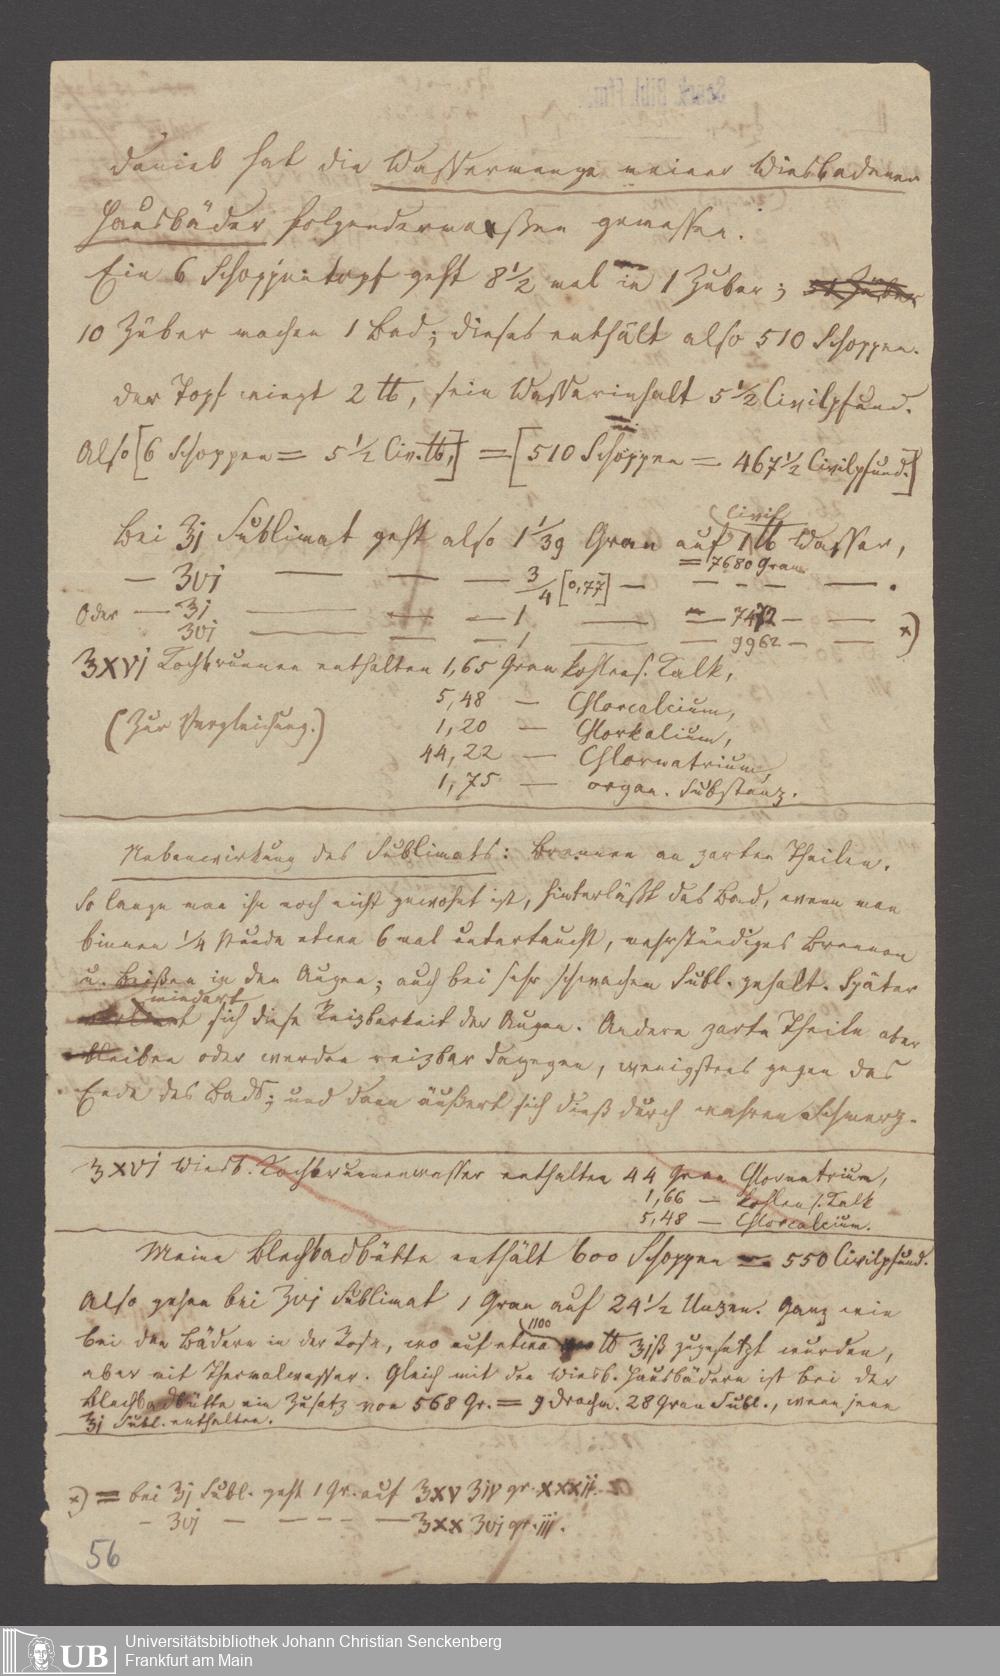 Daniel hat die Wassermenge meiner Wiesbadener
Hausbäder folgendermaßen gemessen.
Ein 6 Schoppentopf geht 8½ mal in 1 Zuber;
10 Züber machen 1 Bad; dieses enthält also 510 Schoppen.
Der Topf wiegt 2 ℔, sein Wasserinhalt 5½ Civilpfund.
Also [6 Schoppen = 5½ Civ. ℔,] = [510 Schoppen = 467½ Civilpfund.]
Civil
Bei ℥j Sublimat geht also 1 1/39 Gran auf 1 ℔ Wasser,
= 7680 Gran
— ʒvj — — — 3/4 [0,77] — — — — — .
Oder — ℥j — — — 1 — = 7472 — —
ʒvj — — — 1 — — 9962 — — ×)
℥xvj Kochbrunnen enthalten 1,65 Gran kohlens. Kalk,
5,48 — Chlorcalcium,
(Zur Vergleichung.) 1,20 — Chlorkalium,
44,22 — Chlornatrium,
1,75 — organ. Substanz.
Nebenwirkung des Sublimats: Brennen an zarten Theilen.
So lange man ihn noch nicht gewohnt ist, hinterläßt das Bad, wenn man
binnen ¼ Stunde etwa 6 mal untertaucht, mehrstündiges Brennen
u. Beißen in den Augen; auch bei sehr schwachem Subl. gehalt. Später
mindert
sich diese Reizbarkeit der Augen. Andere zarte Theile aber
bleiben oder werden reizbar dagegen, wenigstens gegen das
Ende des Bads; und dann äußert sich dieß durch wahren Schmerz.
℥xvj Wiesb. Kochbrunnenwasser enthalten 44 Gran Chlornatrium,
1,66 — kohlens. Kalk
5,48 — Chlorcalcium.
Meine Blechbadbütte enthält 600 Schoppen = 550 Civilpfund.
Also gehen bei ʒvj Sublimat 1 Gran auf 24½ Unzen. Ganz wie
1100
bei den Bädern in der Rose, wo auf etwa ℔ ℥jß zugesetzt wurden,
aber mit Thermalwasser. Gleich mit den Wiesb. Hausbädern ist bei der
Blechbadbütte ein Zusatz von 568 Gr. = 9 Drachm. 28 Gran Subl., wenn jene
℥j Subl. enthalten.
×) = bei ℥j Subl. geht 1 Gr. auf ℥xv ʒiv gr. xxxij.
— ʒvj — — — — — ℥xx ʒvj gr. ij.
56
UB
Universitätsbibliothek Johann Christian Senckenberg
Frankfurt am Main